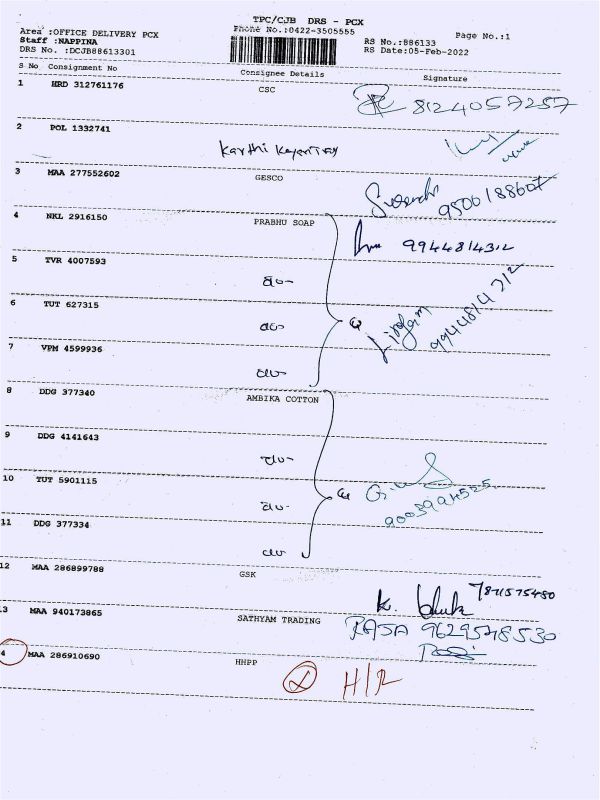 TPC/CJB DRS - PCX
Area :OFFICE DELIVERY PCX
Phone No.:0422-3505555
Page No.:1
Staff :NAPPINA
RS No.:886133
DRS No. :DCJB88613301
RS Date:05-Feb-2022
S No Consignment No Consignee Details Signature
1 HRD 312761176 CSC 8124057257
2 POL 1332741
Karthi
3 MAA 277552602 GESCO
9500188607
4 NKL 2916150 PRABHU SOAP 9944814312
5 TVR 4007593
do-
6 TUT 627315
do-
Lingam 9944814212
7 VPM 4599936
do-
8 DDG 377340 AMBIKA COTTON
9 DDG 4141643
do-
10 TUT 5901115
do-
9003994525
11 DDG 377334
do-
12 MAA 286899788 GSK
K. 7871575480
13 MAA 940173865 SATHYAM TRADING
RAJA 9629548530
4 MAA 286910690 HHPP
H/R